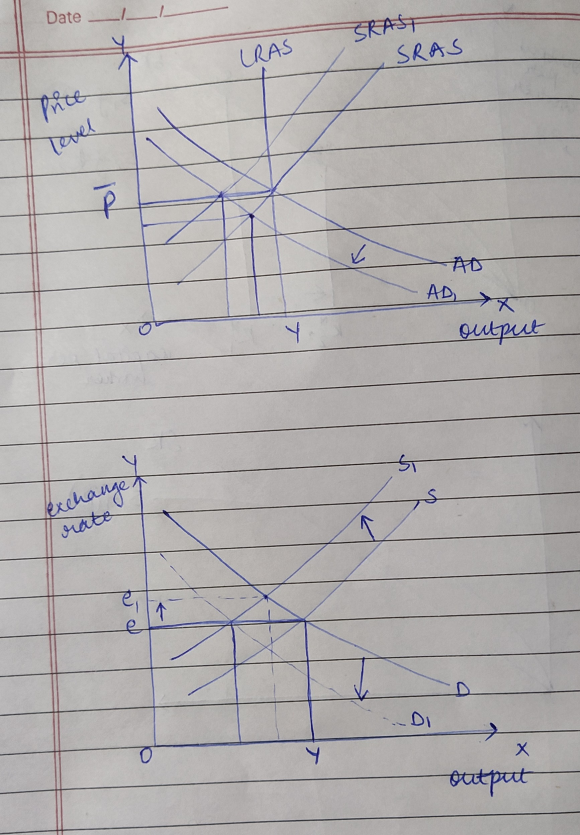 Date __/__/__
Y
LRAS
SRAS1
SRAS
Price
level
P̅
AD
AD1
X
O
Y
output
Y
exchange
rate
S1
S
e1
e
D
D1
O
Y
X
output